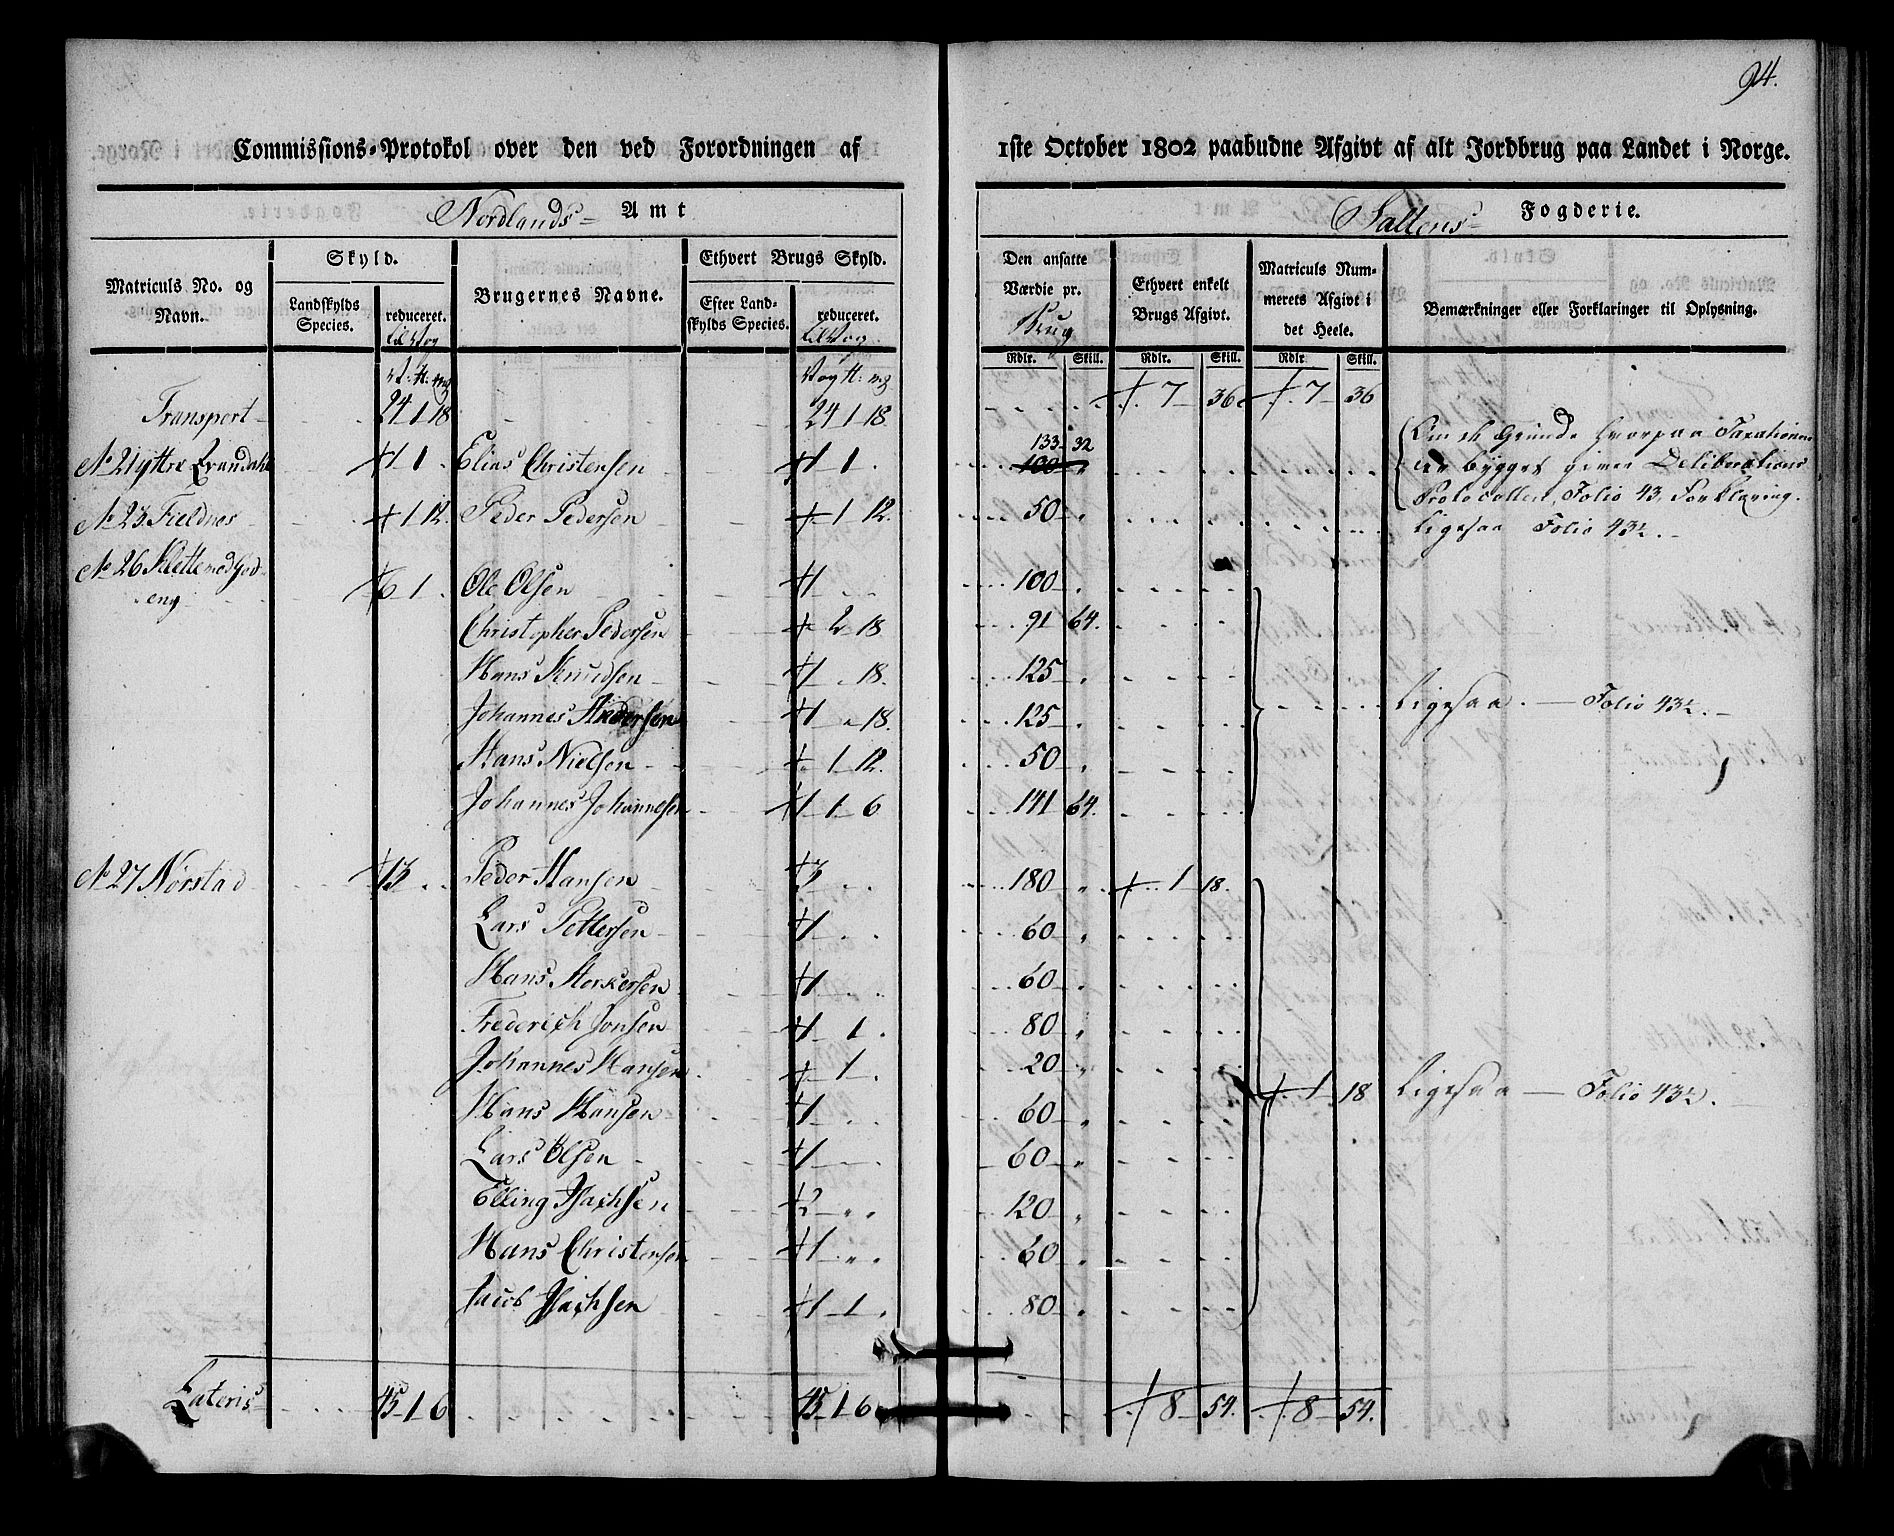 94.
Commissions-Protokol over den ved Forordningen af 1ste October 1802 paabudne Afgivt af alt Jordbrug paa Landet i Norge.
Nordlands- Amt Saltens- Fogderie.
Matriculs No. og Navn. Skyld. Brugernes Navne. Ethvert Brugs Skyld. Den ansatte Værdie pr. Brug Ethvert enkelt Brugs Afgivt. Matriculs Nummerets Afgivt i det Heele. Bemærkninger eller Forklaringer til Oplysning.
Landskylds Species. reduceret. til Vog Efter Landskylds Species. reduceret. til Vog
Rdlr. Skill. Rdlr. Skill. Rdlr Skill.
Transport 24 1 18 24 1 18 7 36 7 36
No 21 yttre Evendahl 1 1 Elias Christensen 1 1 133 32 100 Om de Grunde hvorpaa Taxationen
er bygget giver Deliberations
Protocollen, Folio 43, Forklaring.
No 23 Fieldnes 1 12 Peder Pedersen 1 12 50 Ligesaa Folio 43
No 26 Klette med God-
eng 6 1 Ole Olsen 1 100
Christopher Pedersen 2 18 91 64
Hans Knudsen 1 18 125
Johannes Andersen 1 18 125 Ligesaa Folio 43
Hans Nielsen 1 12 50
Johannes Johannesen 1 1 6 141 64
No 27 Nørstad 13 Peder Hansen 3 180 1 18
Lars Pettersen 1 60
Hans Storkersen 1 60
Frederich Jonsen 1 1 80
Johannes Hansen 1 20
Hans Hansen 1 60 1 18 Ligesaa Folio 43
Lars Olsen 1 60
Elling Isachsen 2 120
Hans Christensen 1 60
Jacob Isachsen 1 1 80
Lateris 45 1 6 45 1 6 8 54 8 54